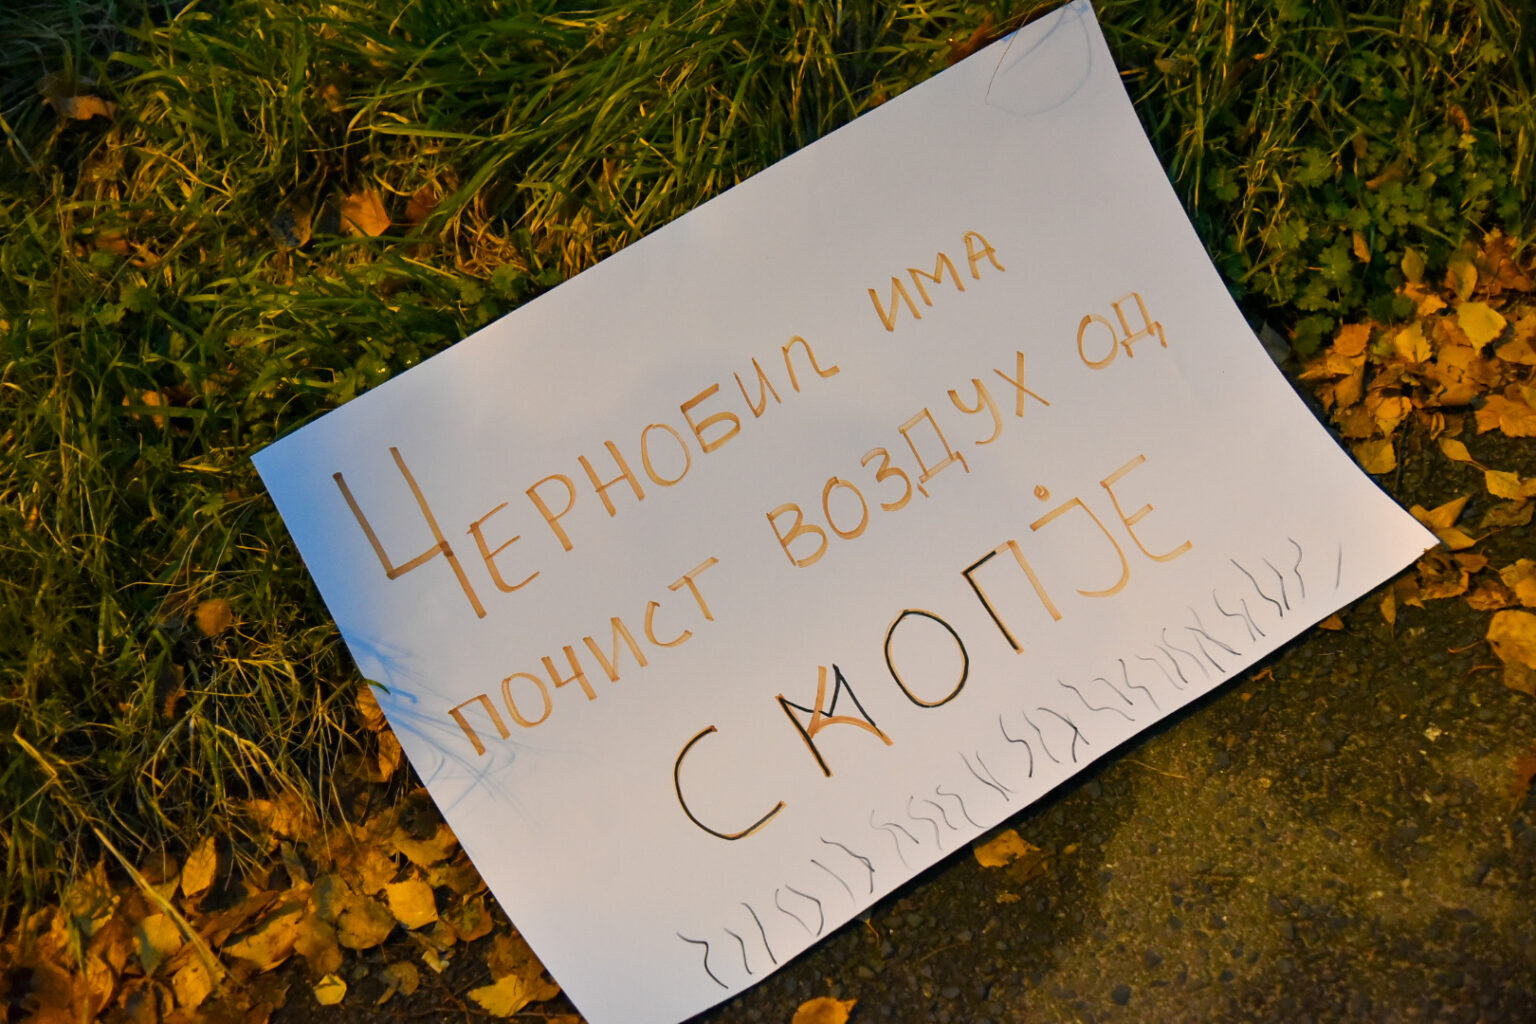 ЧЕРНОБИЛ ИМА
ПОЧИСТ ВОЗДУХ ОД
СКОПЈЕ